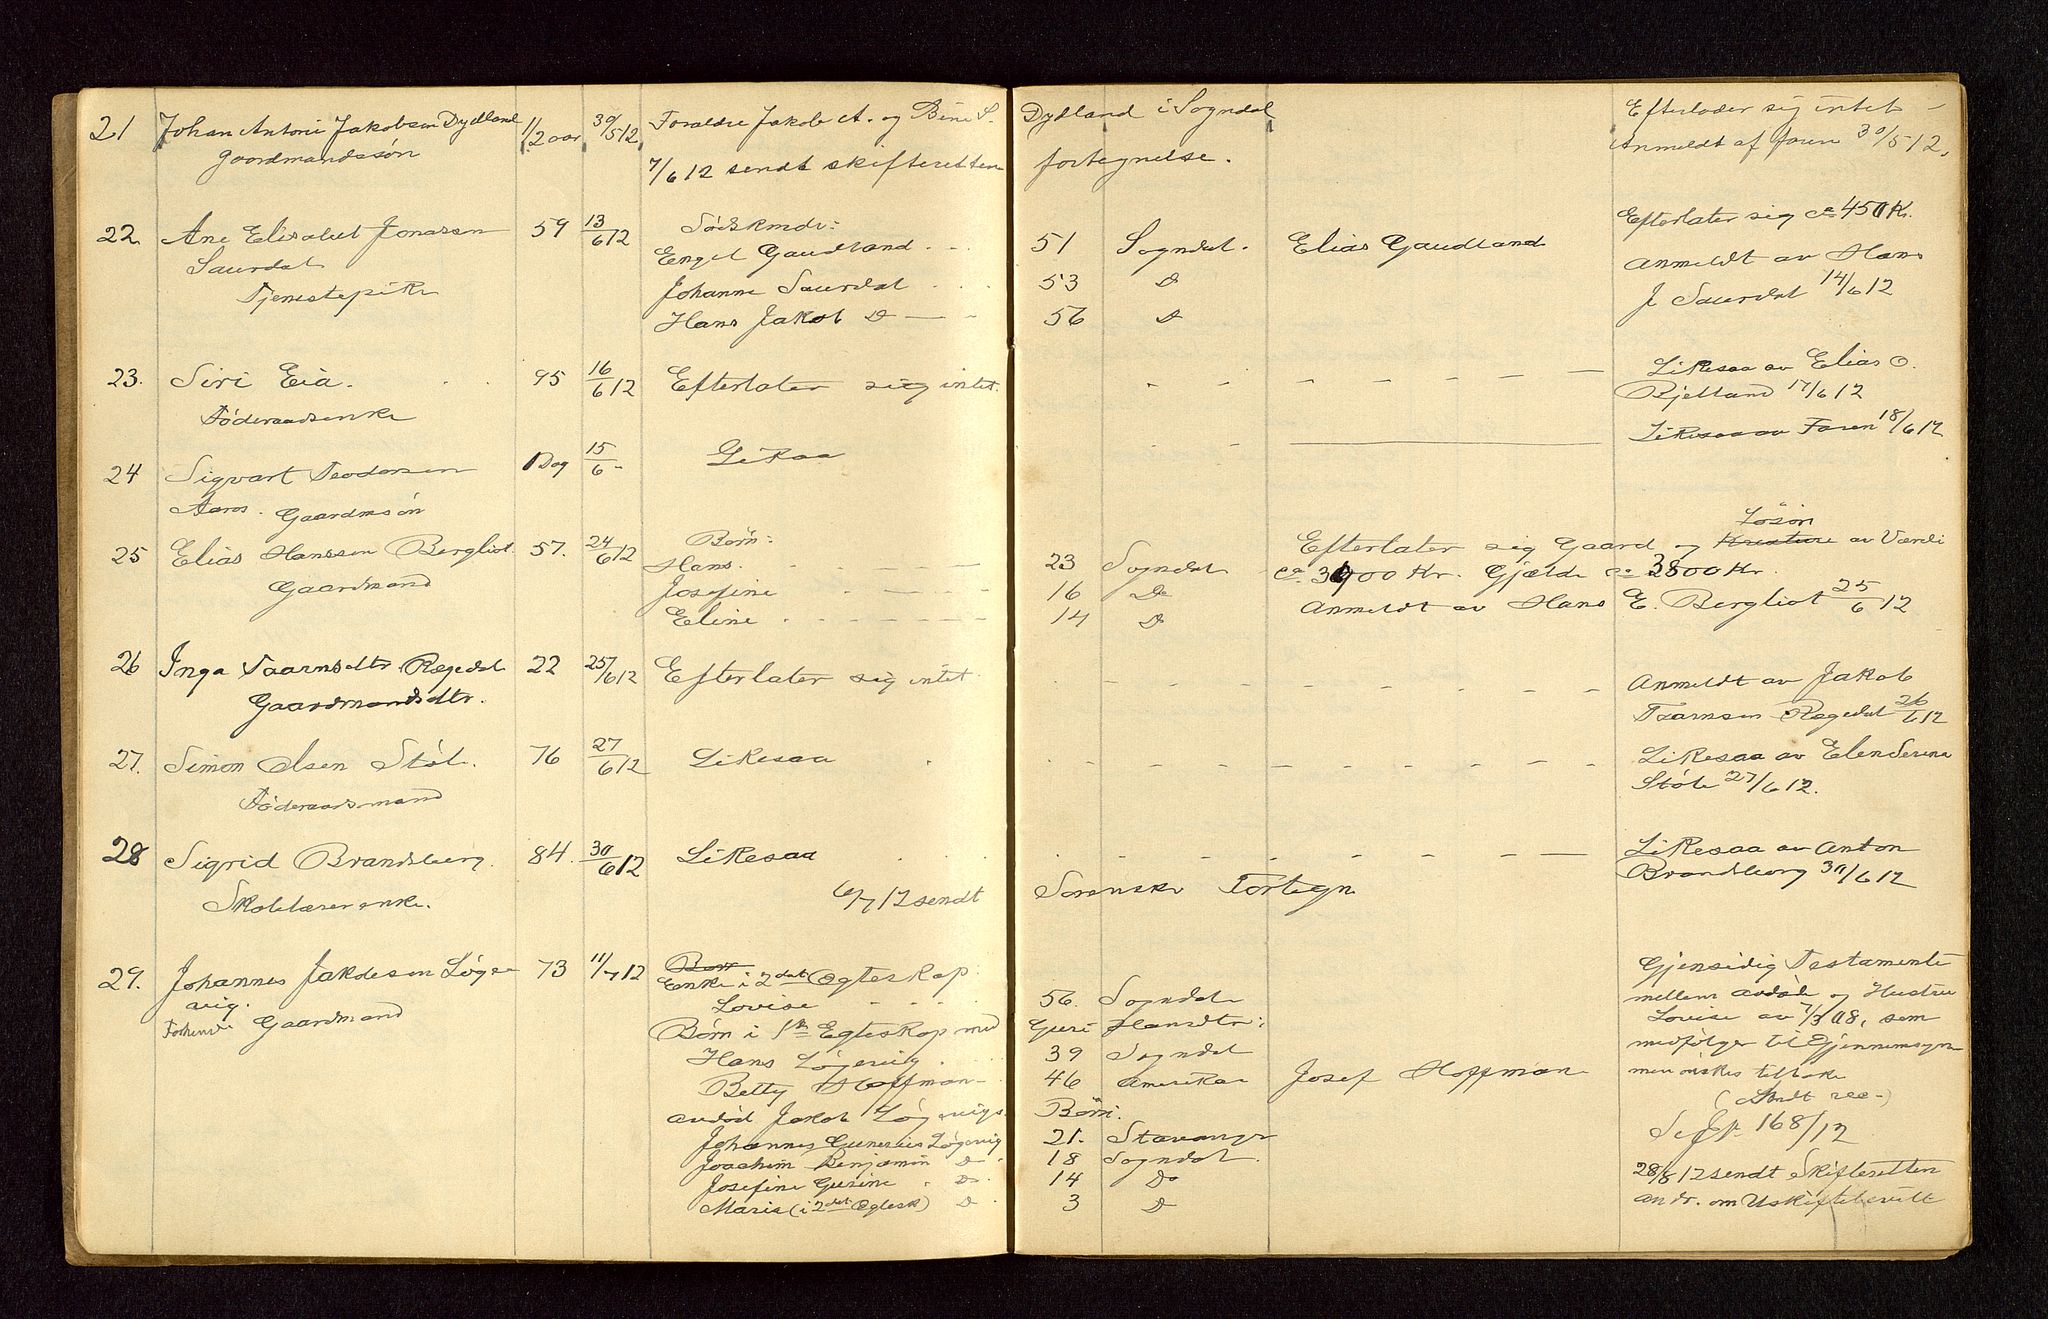 21 Johan Antoni Jakobsen Dydland 1/2 aar 30/5 12 Foraldre Jakob A. og Bine S. Dydland i Sogndal Efterlader sig intet –
Gaardmandssøn 7/6 12 sendt skifteretten fortegnelse. Anmeldt af faren 30/5 12.
22. Ane Elisabet Jonassen 59 13/6 12 Södskende: Efterlater sig ca 450 Kr.
Saurdal Engel Gaudland 51 Sogndal. Elias Gaudland anmeldt av Hans
Tjenestepike Johanne Saurdal 53 Do J. Saurdal 14/6 12
Hans Jakob Do 56 Do
23. Siri Eia. 95 16/6 12 Efterlater sig intet. Likesaa av Elias O.
Föderaadsenke Bjelland 17/6 12
24 Sigvart Teodorsen 1 Dag 15/6 – Likaa Likesaa av Faren 18/6 12
Aaros. Gaardmsön
25 Elias Hanssen Bergliot. 57. 24/6 12 Børn: Efterlater sig Gaard og Kreature Løsöre av Værdi
Gaardmand Hans. 23 Sogndal ca 3900 Kr. Gjæld ca 3800 Kr.
Josefine 16 Do anmeldt av Hans E. Bergliot 25/6 12
Eline 14 Do
26 Inga Taarnsdtr Regedal 22 25/6 12 Efterlater sig intet. Anmeldt av Jakob
Gaardmandsdtr. Taarnsen Regedal 26/6 12
27. Simon Olsen Støle. 76 27/6 12 Likesaa Likesaa av Elen Serina
Föderaadsmand Støle 27/6 12.
28 Sigrid Brandsberg. 84. 30/6 12 Likesaa Likesaa av Anton
Skolelærerenke. 6/7 12 sendt Sorenskr Fortegn Brandsberg 30/6 12
29. Johannes Jakobsen Løge- 73 11/7 12 Børn Gjensidig Testamente
vig. Enke i 2det Ægteskap mellem avdøde og Hustru
Gaardmand Lovise 56. Sogndal Lovise av 7/3 08, som
Børn i 1ste Egteskap med Guri Hansdtr: medfölger til Gjennemsyn
Hans Løgevig 39 Sogndal men ønskes tilbake
Betty Hoffman 46 Amerika Josef Hoffman (Sendt rec–)
avdöd Jakob Løgevigs Børn.
Johannes Gunerius Løgevig 21. Stavanger 168/12
Joachim Benjamin Do 18 Sogndal.
Josefine Gurine Do 14 Do 28/8 12 sendt Skifteretten
Marie (i 2det Ægtesk) Do 3 Do andr. om Uskiftebevill